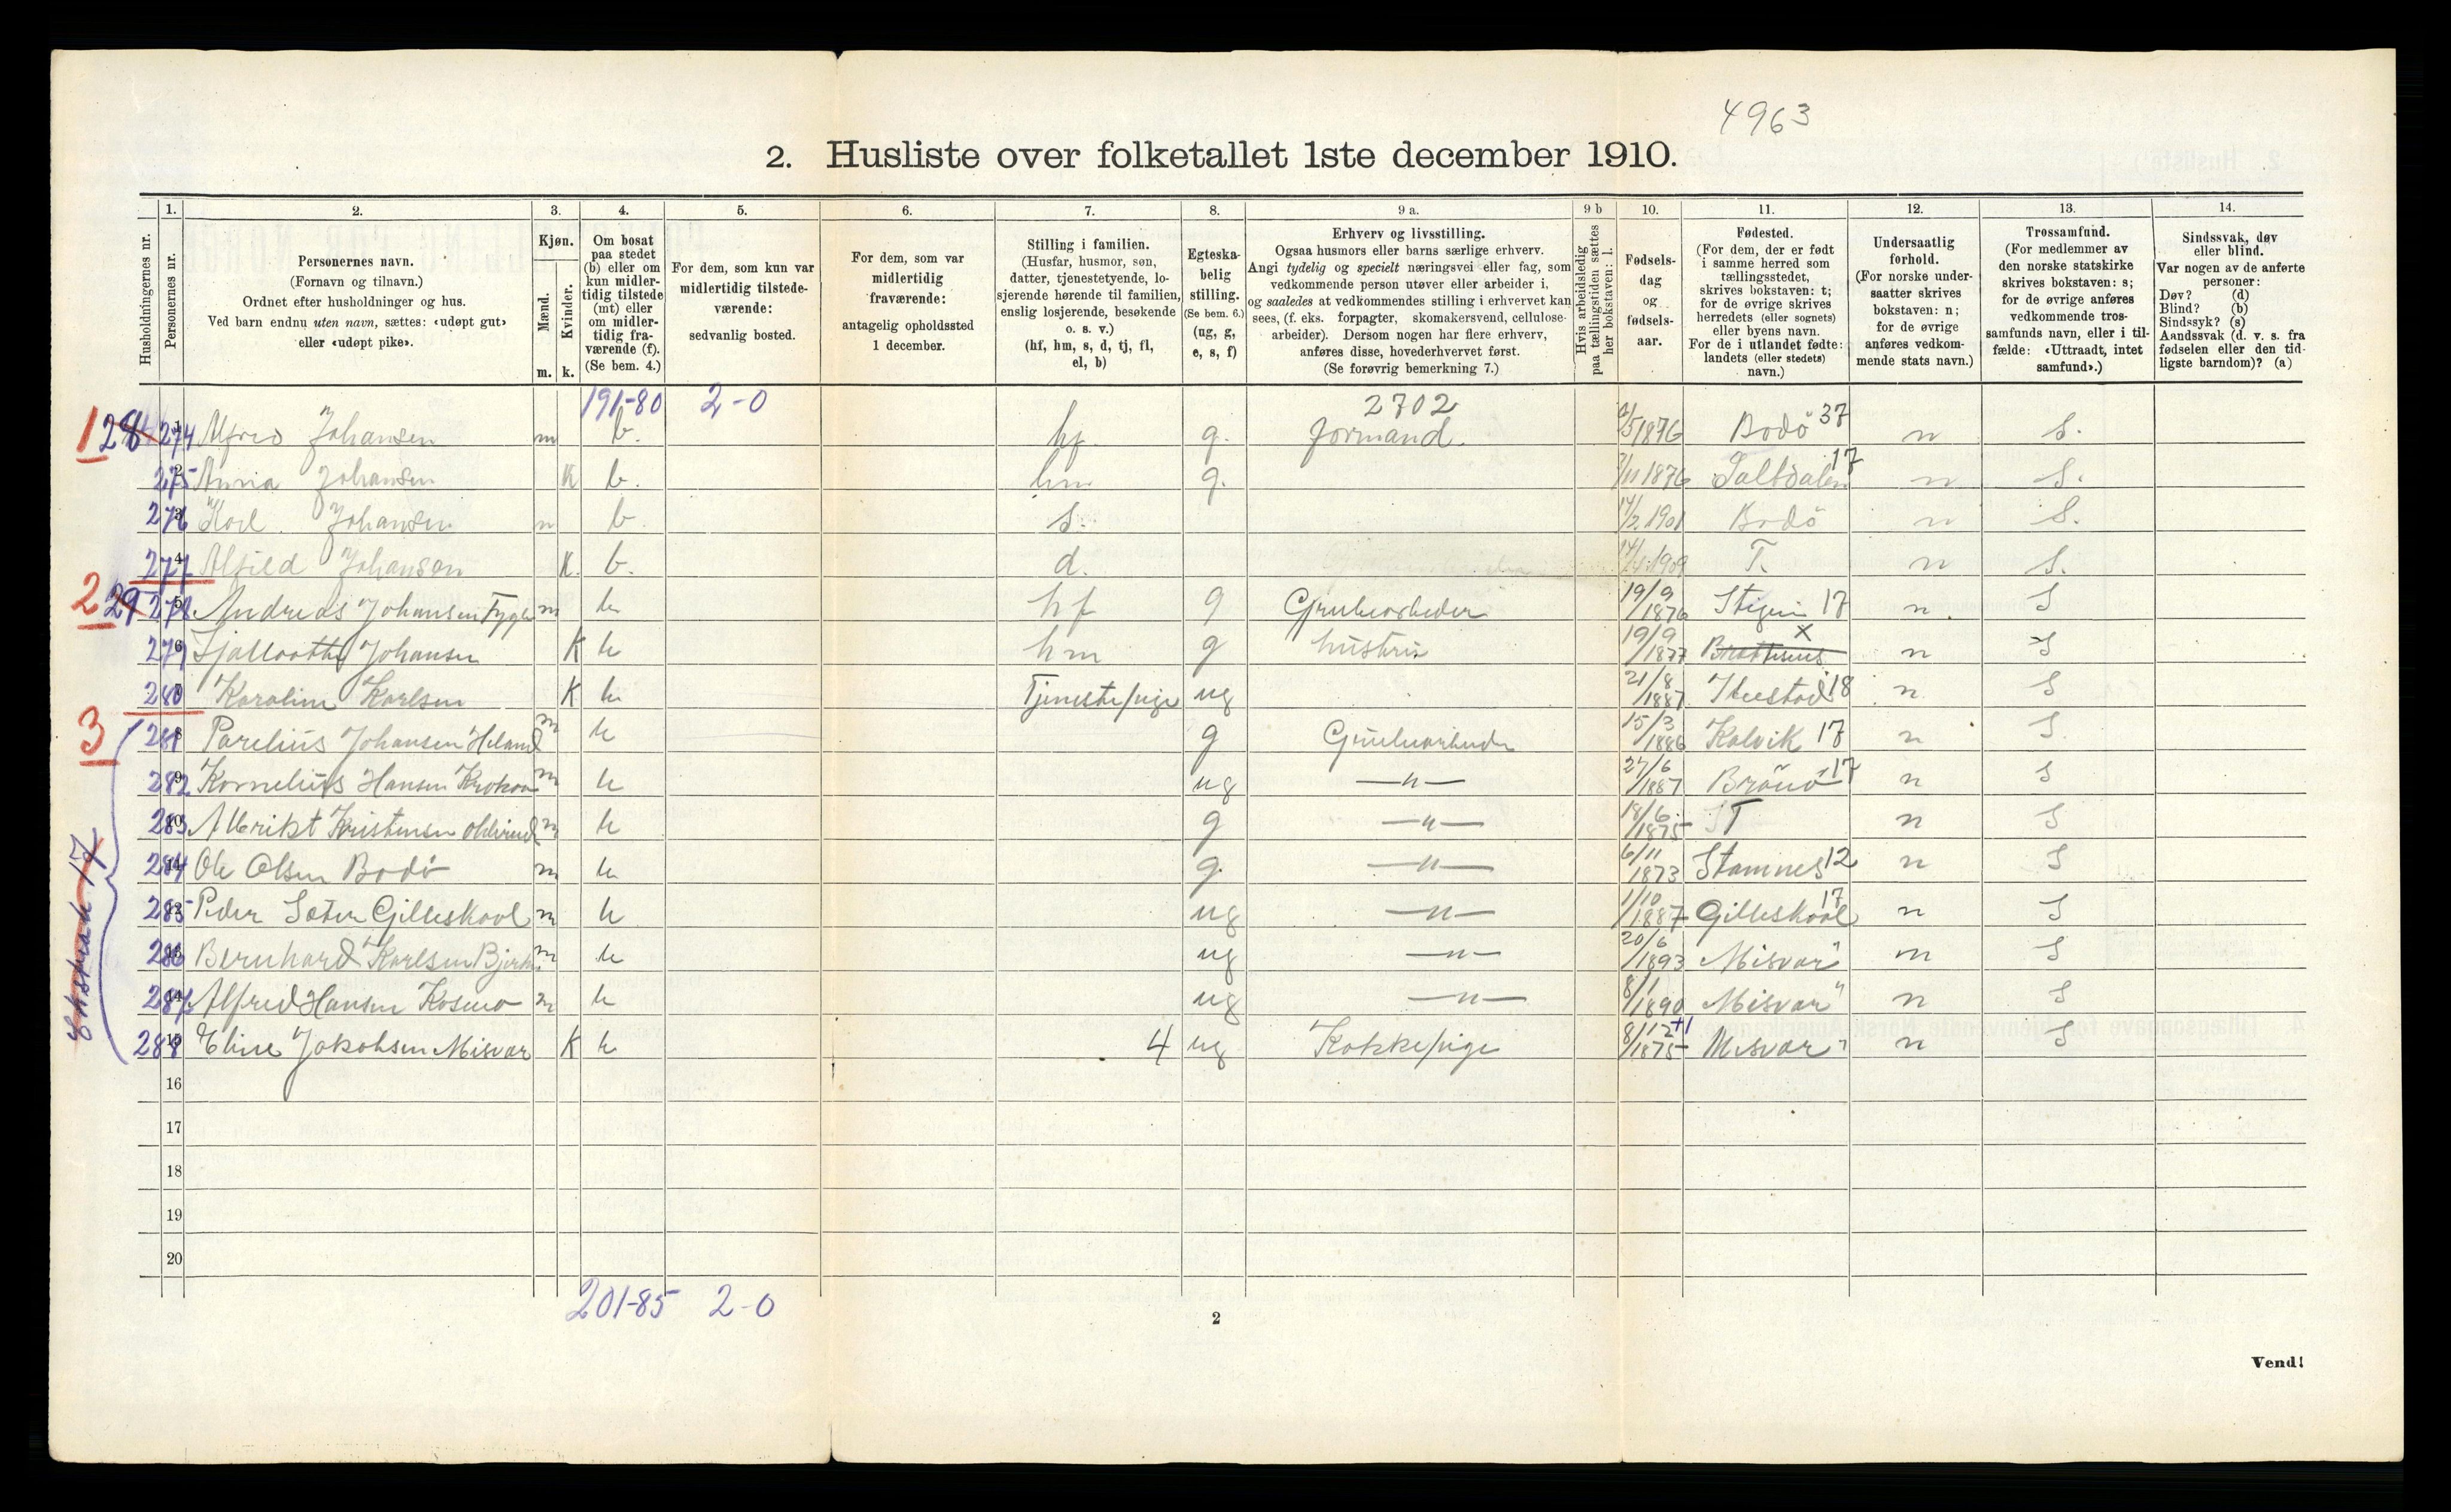 4963
2. Husliste over folketallet 1ste december 1910.
Husholdningernes nr.
1. Personernes nr.
2. Personernes navn.
(Fornavn og tilnavn.)
Ordnet efter husholdninger og hus.
Ved barn endnu uten navn, sættes: «udøpt gut»
eller «udøpt pike».
3. Kjøn.
Mænd. m.
Kvinder. k.
4. Om bosat
paa stedet
(b) eller om
kun midler-
tidig tilstede
(mt) eller
om midler-
tidig fra-
værende (f).
(Se bem. 4.)
5. For dem, som kun var
midlertidig tilstede-
værende:
sedvanlig bosted.
6. For dem, som var
midlertidig
fraværende:
antagelig opholdssted
1 december.
7. Stilling i familien.
(Husfar, husmor, søn,
datter, tjenestetyende, lo-
sjerende hørende til familien,
enslig losjerende, besøkende
o. s. v.)
(hf, hm, s, d, tj, fl,
el, b)
8. Egteska-
belig
stilling.
(Se bem. 6.)
(ug, g,
e, s, f)
9 a. Erhverv og livsstilling.
Ogsaa husmors eller barns særlige erhverv.
Angi tydelig og specielt næringsvei eller fag, som
vedkommende person utøver eller arbeider i,
og saaledes at vedkommendes stilling i erhvervet kan
sees, (f. eks. forpagter, skomakersvend, cellulose-
arbeider). Dersom nogen har flere erhverv,
anføres disse, hovederhvervet først.
(Se forøvrig bemerkning 7.)
9 b Hvis arbeidsledig
paa tællingstiden sættes
her bokstaven: l.
10. Fødsels-
dag
og
fødsels-
aar.
11. Fødested.
(For dem, der er født
i samme herred som
tællingsstedet,
skrives bokstaven: t;
for de øvrige skrives
herredets (eller sognets)
eller byens navn.
For de i utlandet fødte:
landets (eller stedets)
navn.)
12. Undersaatlig
forhold.
(For norske under-
saatter skrives
bokstaven: n;
for de øvrige
anføres vedkom-
mende stats navn.)
13. Trossamfund.
(For medlemmer av
den norske statskirke
skrives bokstaven: s;
for de øvrige anføres
vedkommende tros-
samfunds navn, eller i til-
fælde: «Uttraadt, intet
samfund».)
14. Sindssvak, døv
eller blind.
Var nogen av de anførte
personer:
Døv? (d)
Blind? (b)
Sindssyk? (s)
Aandssvak (d. v. s. fra
fødselen eller den tid-
ligste barndom)? (a)
191-80 2-0 2702
1 28 274 1 Alfred Johansen m b. hf. g. formand. /5 1876 Bodö 37 n s.
275 2 Anna Johansen K b. hm g. /11 1876 Saltdalen 17 n s.
276 3 Johansen m b. s. 14/2 1901 Bodö n s.
277 4 Alfild Johansen K. b. d. 14/ 1909 T. n s.
2 29 278 5 Andreas Johansen m b hf g Grubearbeider 19/9 1876 Stigen 17 n S
279 6 Johansen K b hm g hustru 19/9 1877 x n S
280 7 Karoline Karlsen K b Tjenestepige ug 21/8 1887 Ibestad 18 n S
3 281 8 Parelius Johansen m b g Grubearbeider 15/3 1886 Kalvik 17 n S
282 9 Kornelius Hansen m b ug —"— 27/6 1887 Brönö 17 n S
283 10 Albrikt Kristensen m b g —"— 18/6 1875 T n S
284 11 Ole Olsen Bodö m b g. —"— 6/11 1873 Stamnes 12 n S
285 12 Peder Gilleskaal m b ug —"— 1/10 1887 Gilleskaal 17 n S
286 13 Bernhard Karlsen m b ug —"— 20/6 1893 Misvær " n S
287 14 Alfred Hansen Kosmo m b ug —"— 8/1 1890 Misvær " n S
288 15 Eline Jakobsen Misvær K b 4 ug Kokkepige 8/12 1875 +1 Misvær " n S
17
16
17
18
19
20
201-85 2-0
2
Vend!